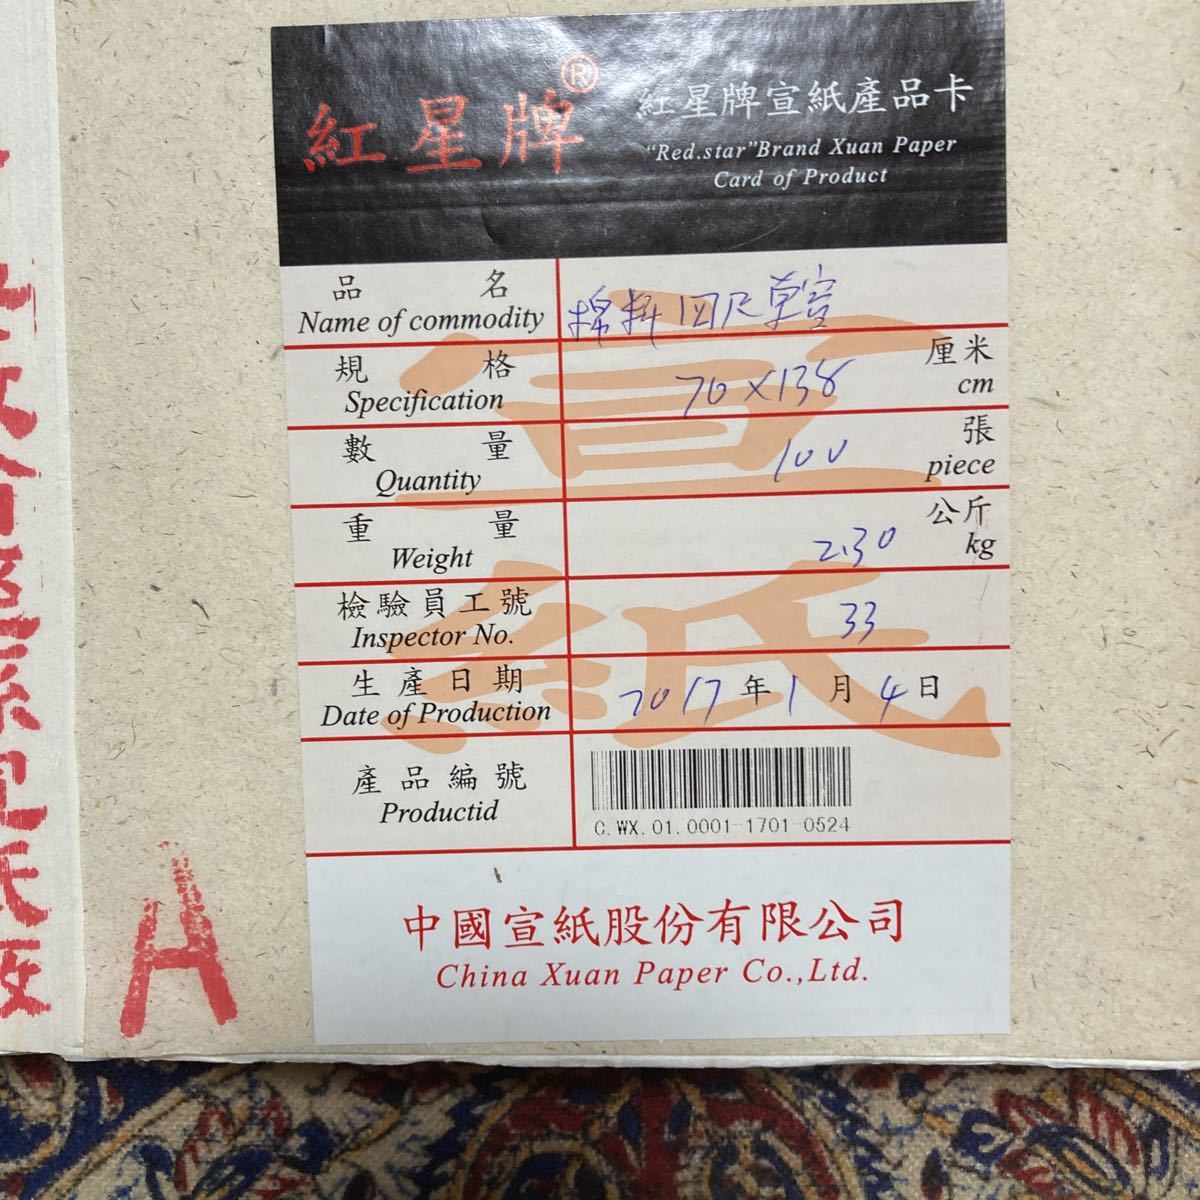 紅星牌®
紅星牌宣紙產品卡
“Red.star”Brand Xuan Paper
Card of Product
品名 棉料四尺单宣
Name of commodity
規格 70×138 厘米
Specification cm
數量 100 張
Quantity piece
重量 2.30 公斤
Weight kg
檢驗員工號 33
Inspector No.
生產日期 2017年1月4日
Date of Production
產品編號
Productid
C.WX.01.0001-1701-0524
中國宣紙股份有限公司
China Xuan Paper Co.,Ltd.
宣紙
A